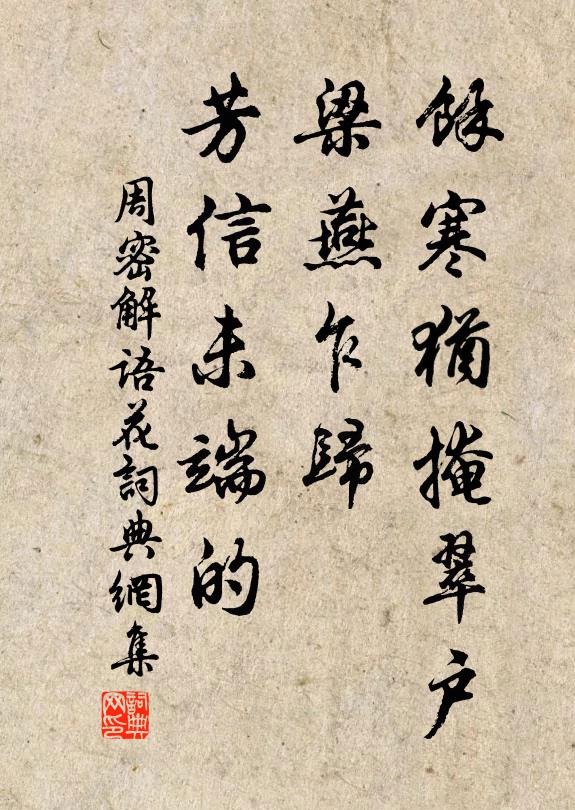 餘寒猶掩翠户
梁燕乍歸
芳信未端的
周密解語花詞典網集
詞典网印